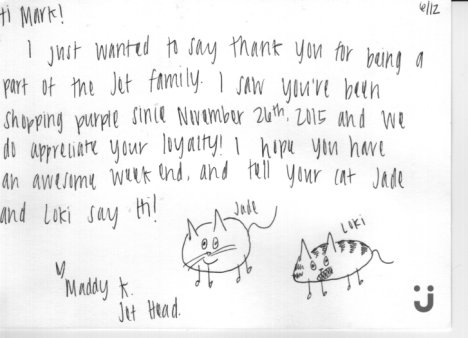 6/12
Hi Mark!
I just wanted to say thank you for being a
part of the Jet family. I saw you're been
shopping purple since November 26th, 2015 and we
do appreciate your loyalty! I hope you have
an awesome weekend, and tell your cat Jade
and Loki say Hi!
Jade
Loki
Maddy K.
Jet Head.